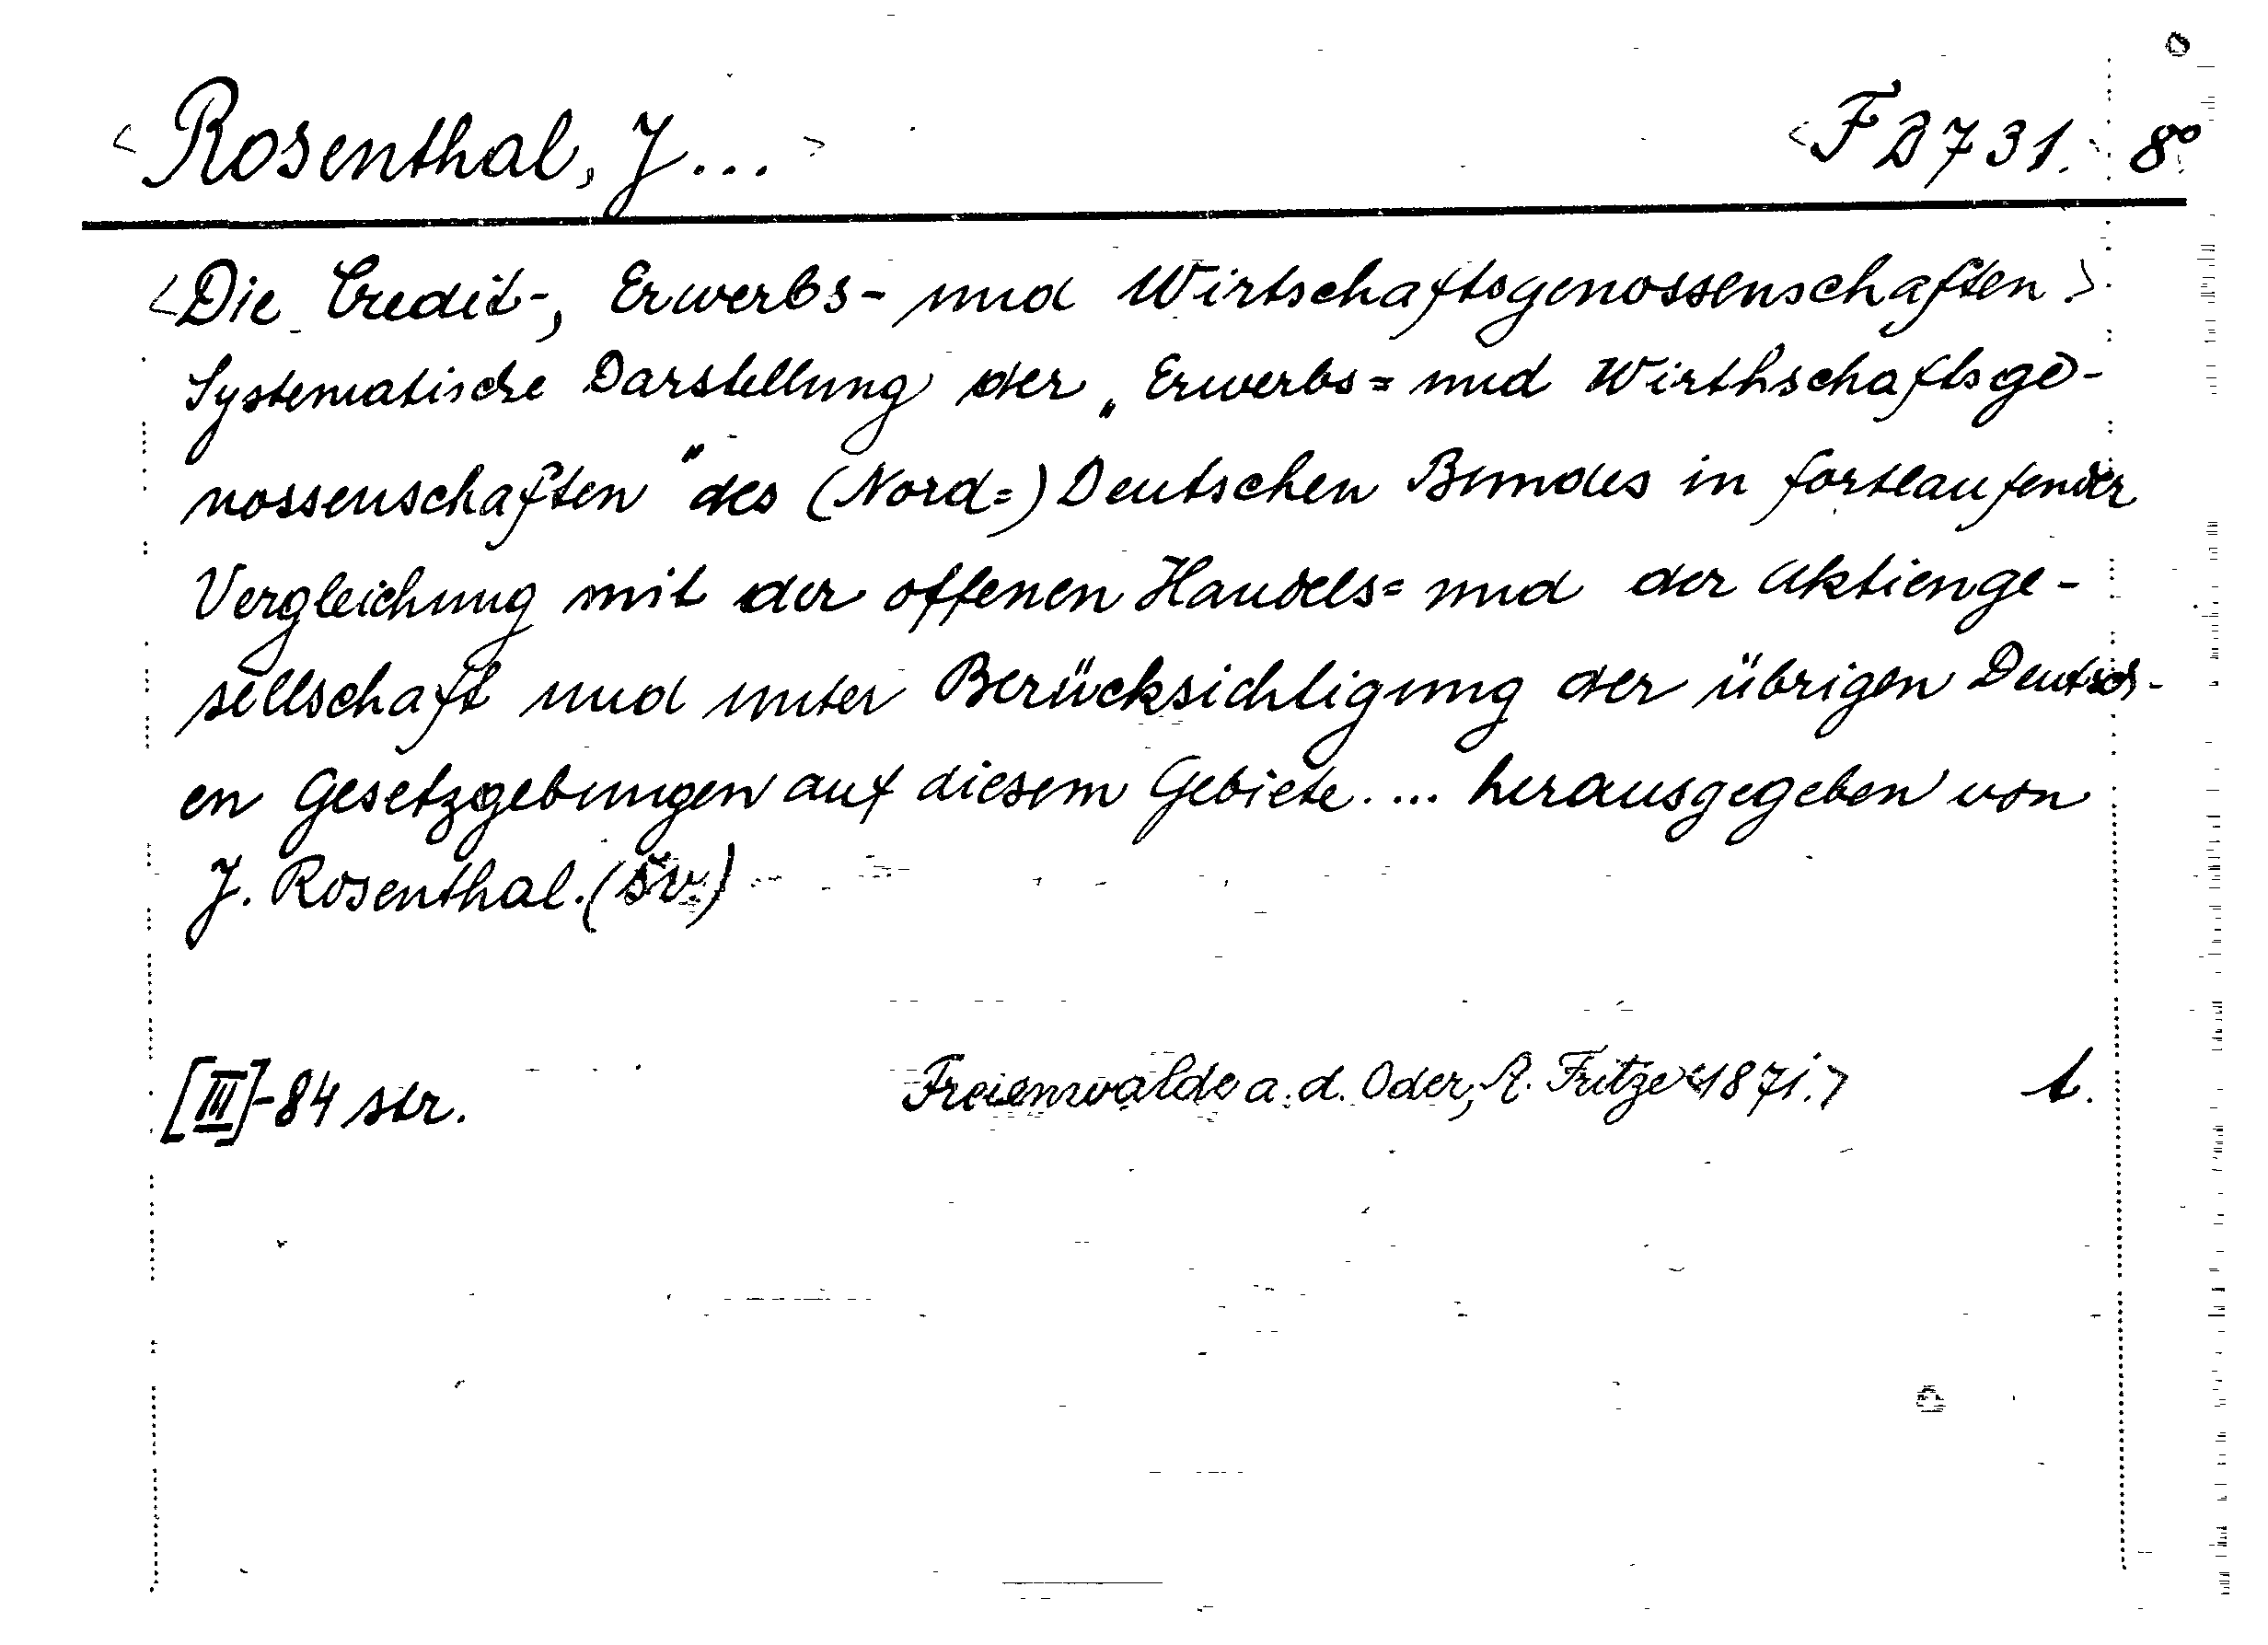 <Rosenthal, J...> <F B 731.> 8°
<Die Credit-, Erwerbs- und Wirtschaftsgenossenschaften.>
Systematische Darstellung der „Erwerbs= und Wirthschaftsge-
nossenschaften" des (Nord=) Deutschen Bundes in fortlaufender
Vergleichung mit der offenen Handels= und der Aktienge-
sellschaft und unter Berücksichtigung der übrigen Deutsch-
en Gesetzgebungen auf diesem Gebiete.... herausgegeben von
J. Rosenthal. (šv.)
[III]-84 str. Freienwalde a. d. Oder, A. Fritze <1871.> t.